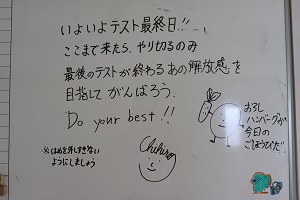 いよいよテスト最終日!!
ここまで来たら、やり切るのみ
最後のテストが終わるあの解放感を
目指して がんばろう.
Do your best!!
※はめを外しすぎない
ようにしましょう
Chihiro
おろし
ハンバーグが
今日の
ごほうびだ!